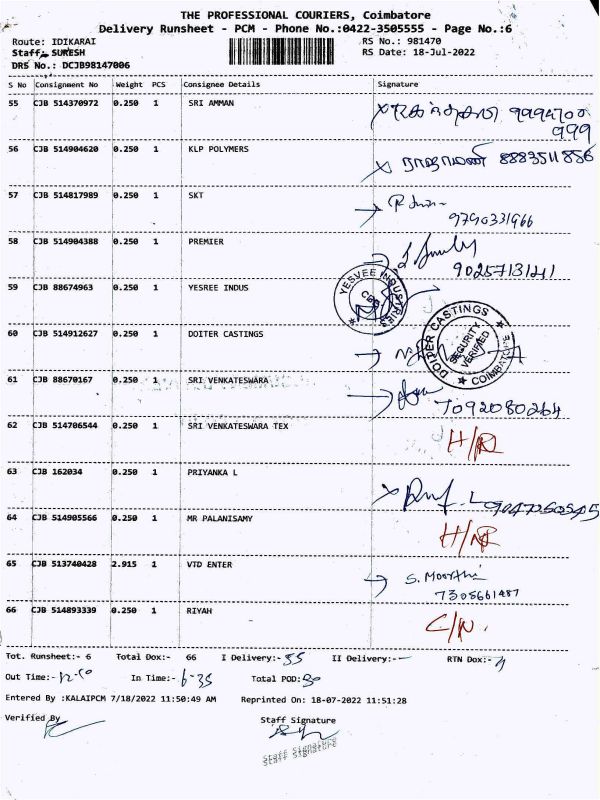 THE PROFESSIONAL COURIERS, Coimbatore
Delivery Runsheet - PCM - Phone No.:0422-3505555 - Page No.:6
Route: IDIKARAI RS No.: 981470
Staff: SURESH RS Date: 18-Jul-2022
DRS No.: DCJB98147006
S No Consignment No Weight PCS Consignee Details Signature
55 CJB 514370972 0.250 1 SRI AMMAN
999
56 CJB 514904620 0.250 1 KLP POLYMERS 8883511856
57 CJB 514817989 0.250 1 SKT
9790331966
58 CJB 514904388 0.250 1 PREMIER
90257131211
59 CJB 88674963 0.250 1 YESREE INDUS
YESVEE INDUSTRIES
CBE
60 CJB 514912627 0.250 1 DOITER CASTINGS
DOITER CASTINGS
SECURITY
VERIFIED
61 CJB 88670167 0.250 1 SRI VENKATESWARA
7092080264
62 CJB 514706544 0.250 1 SRI VENKATESWARA TEX
63 CJB 162034 0.250 1 PRIYANKA L
64 CJB 514905566 0.250 1 MR PALANISAMY
65 CJB 513740428 2.915 1 VTD ENTER S. Moorthi
7305661487
66 CJB 514893339 0.250 1 RIYAH C/N.
Tot. Runsheet:- 6 Total Dox:- 66 I Delivery:- 55 II Delivery:- RTN Dox:-
Out Time:- 12-50 In Time:- 6-35 Total POD: 30
Entered By :KALAIPCM 7/18/2022 11:50:49 AM Reprinted On: 18-07-2022 11:51:28
Verified By Staff Signature
Staff Signature
Staff Signature